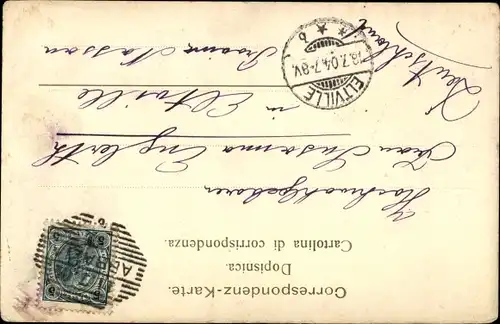 Correspondenz-Karte.
Dopisnica.
Cartolina di corrispondenza.
Hochwohlgeboren
Frau Susanna
in Eltville
Nassau
Deutschland
ELTVILLE
7.04.7-8V.
* * b
5 5
5 5